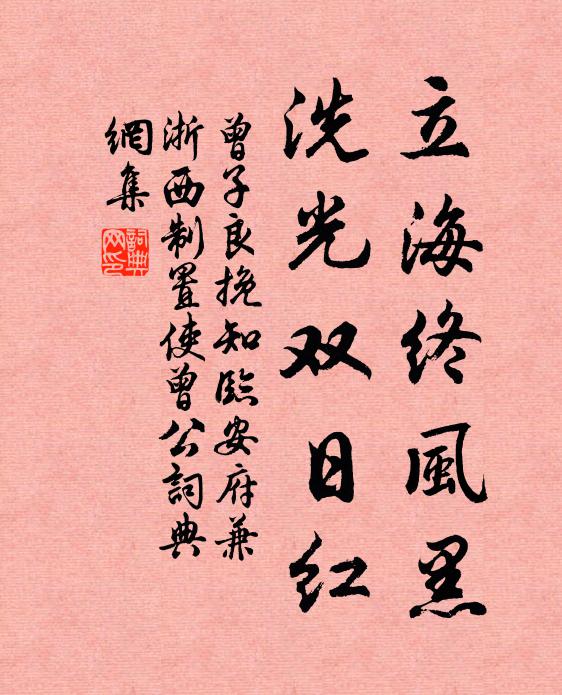 立海终風黑
洗光双日红
曾子良挽知臨安府兼
浙西制置使曾公詞典
網集
詞典
网印